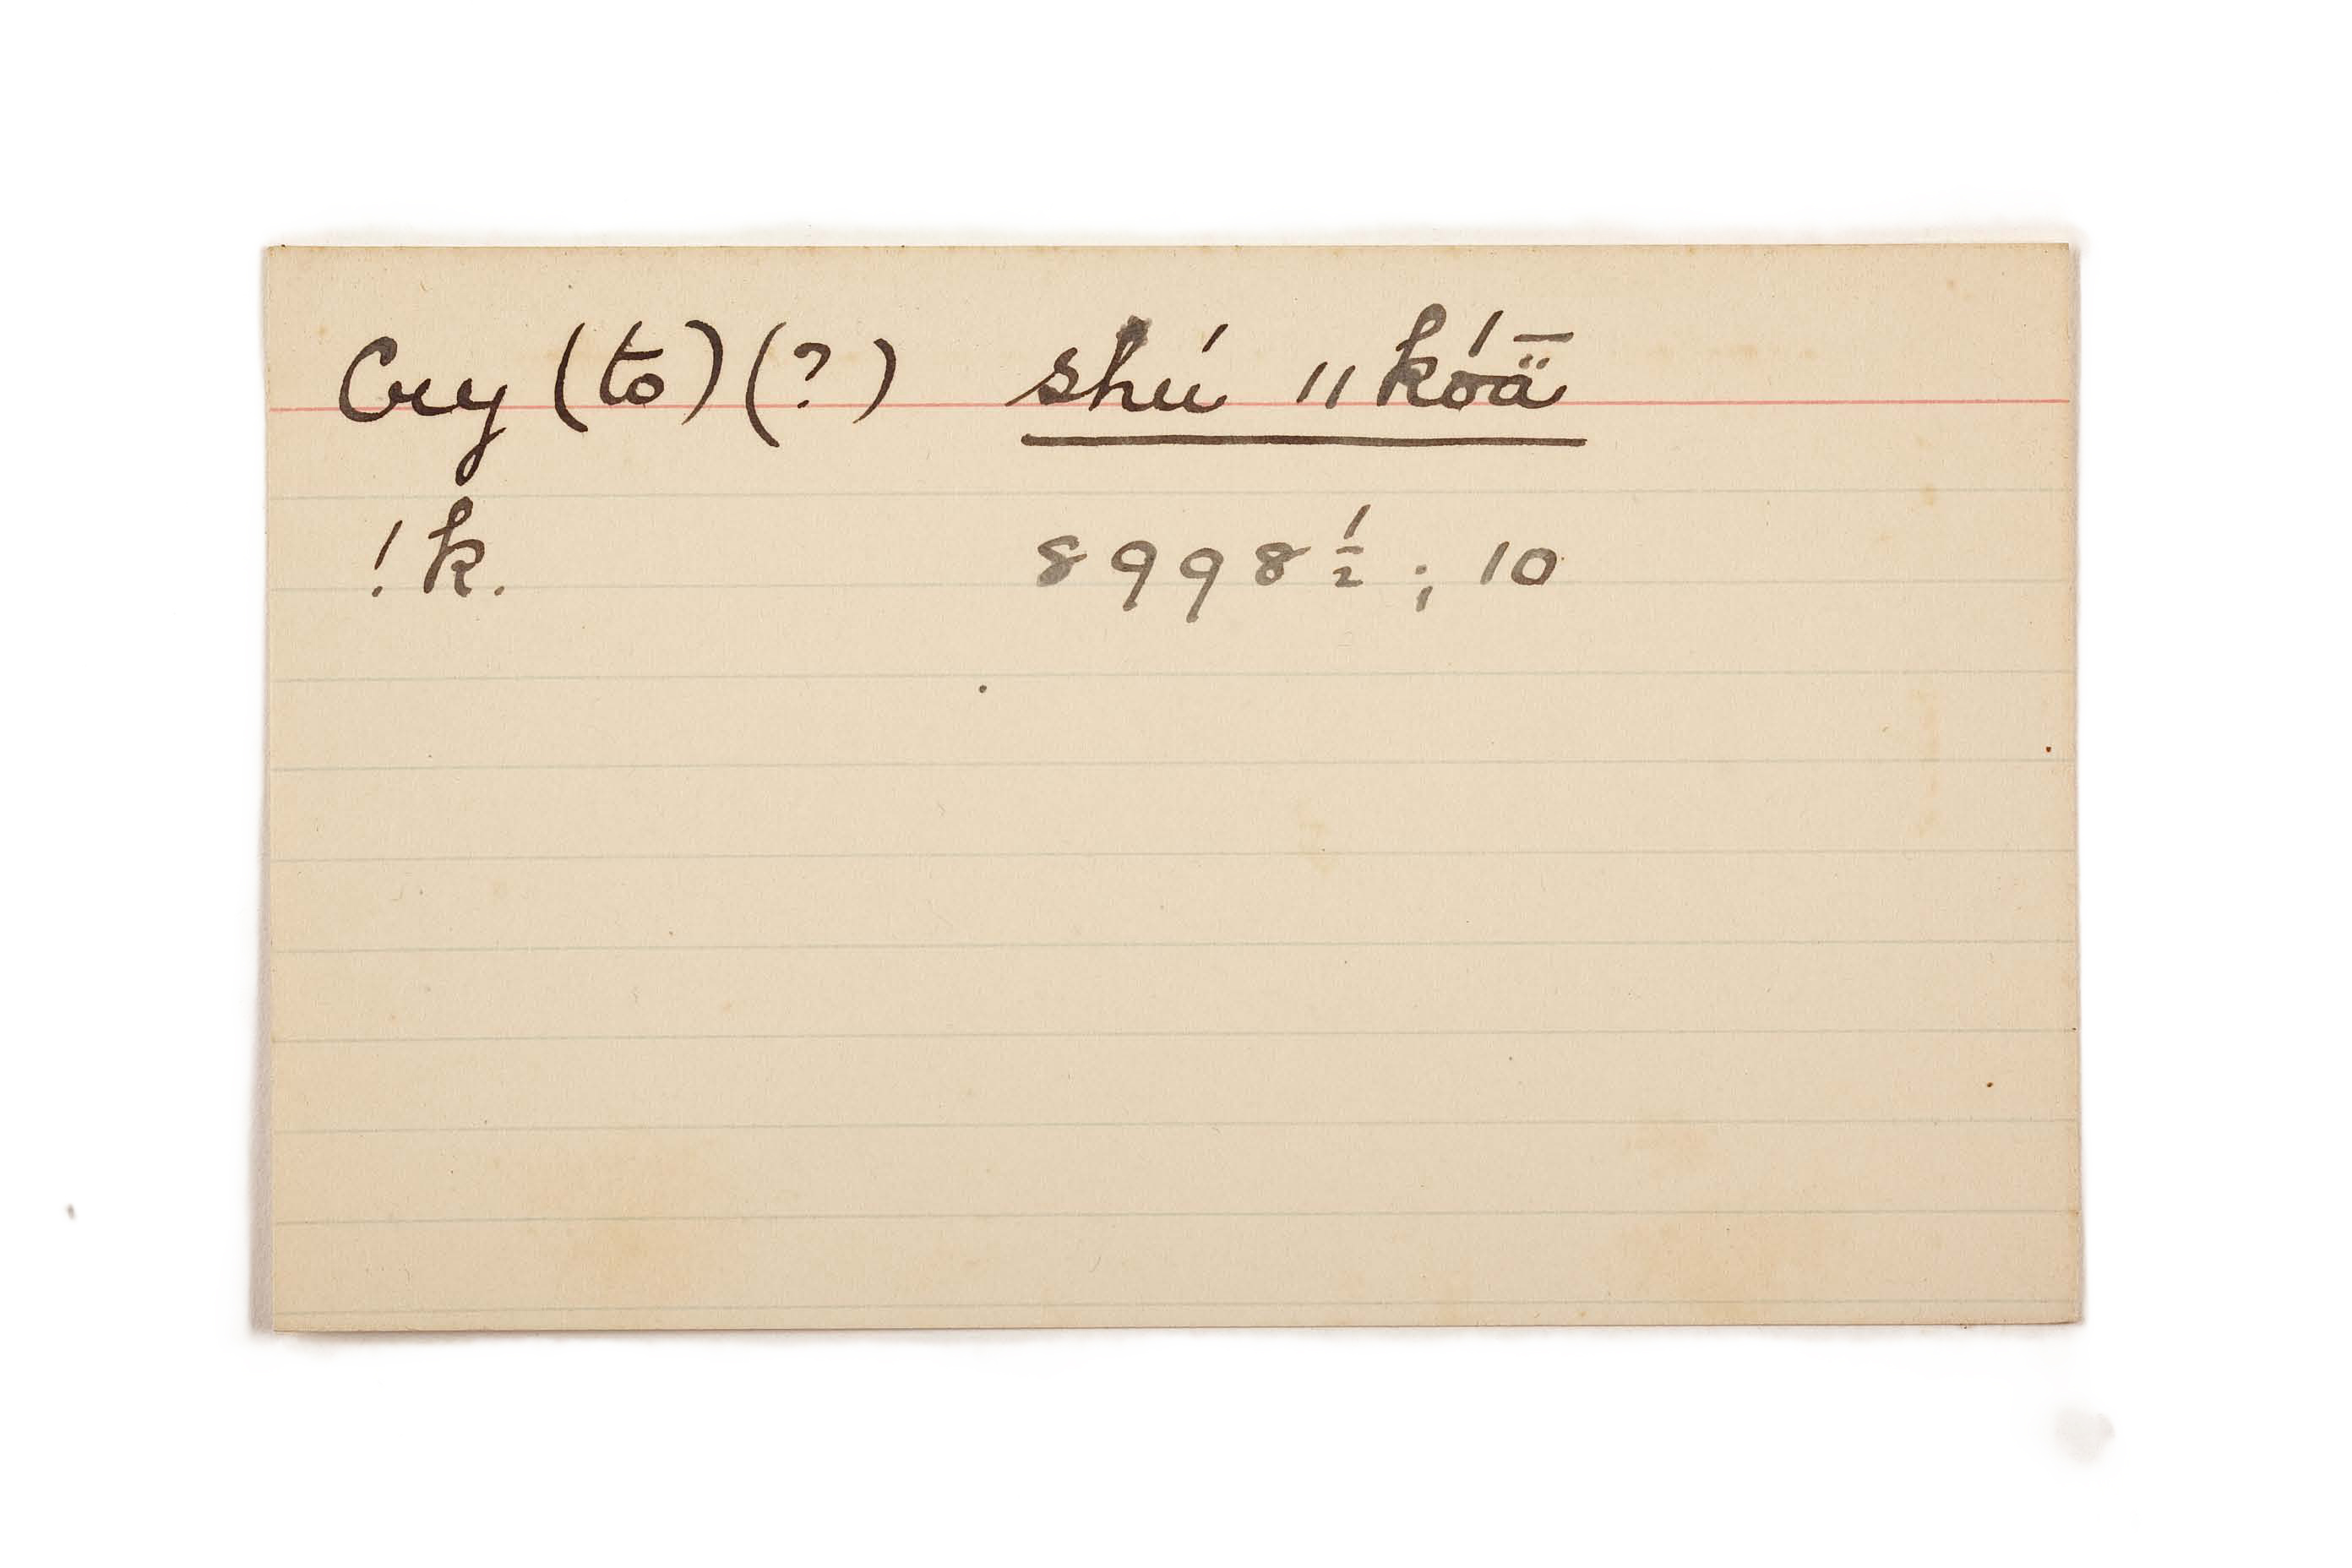 Cry (to) (?) shú ॥kóā̈
!k. 8998½; 10